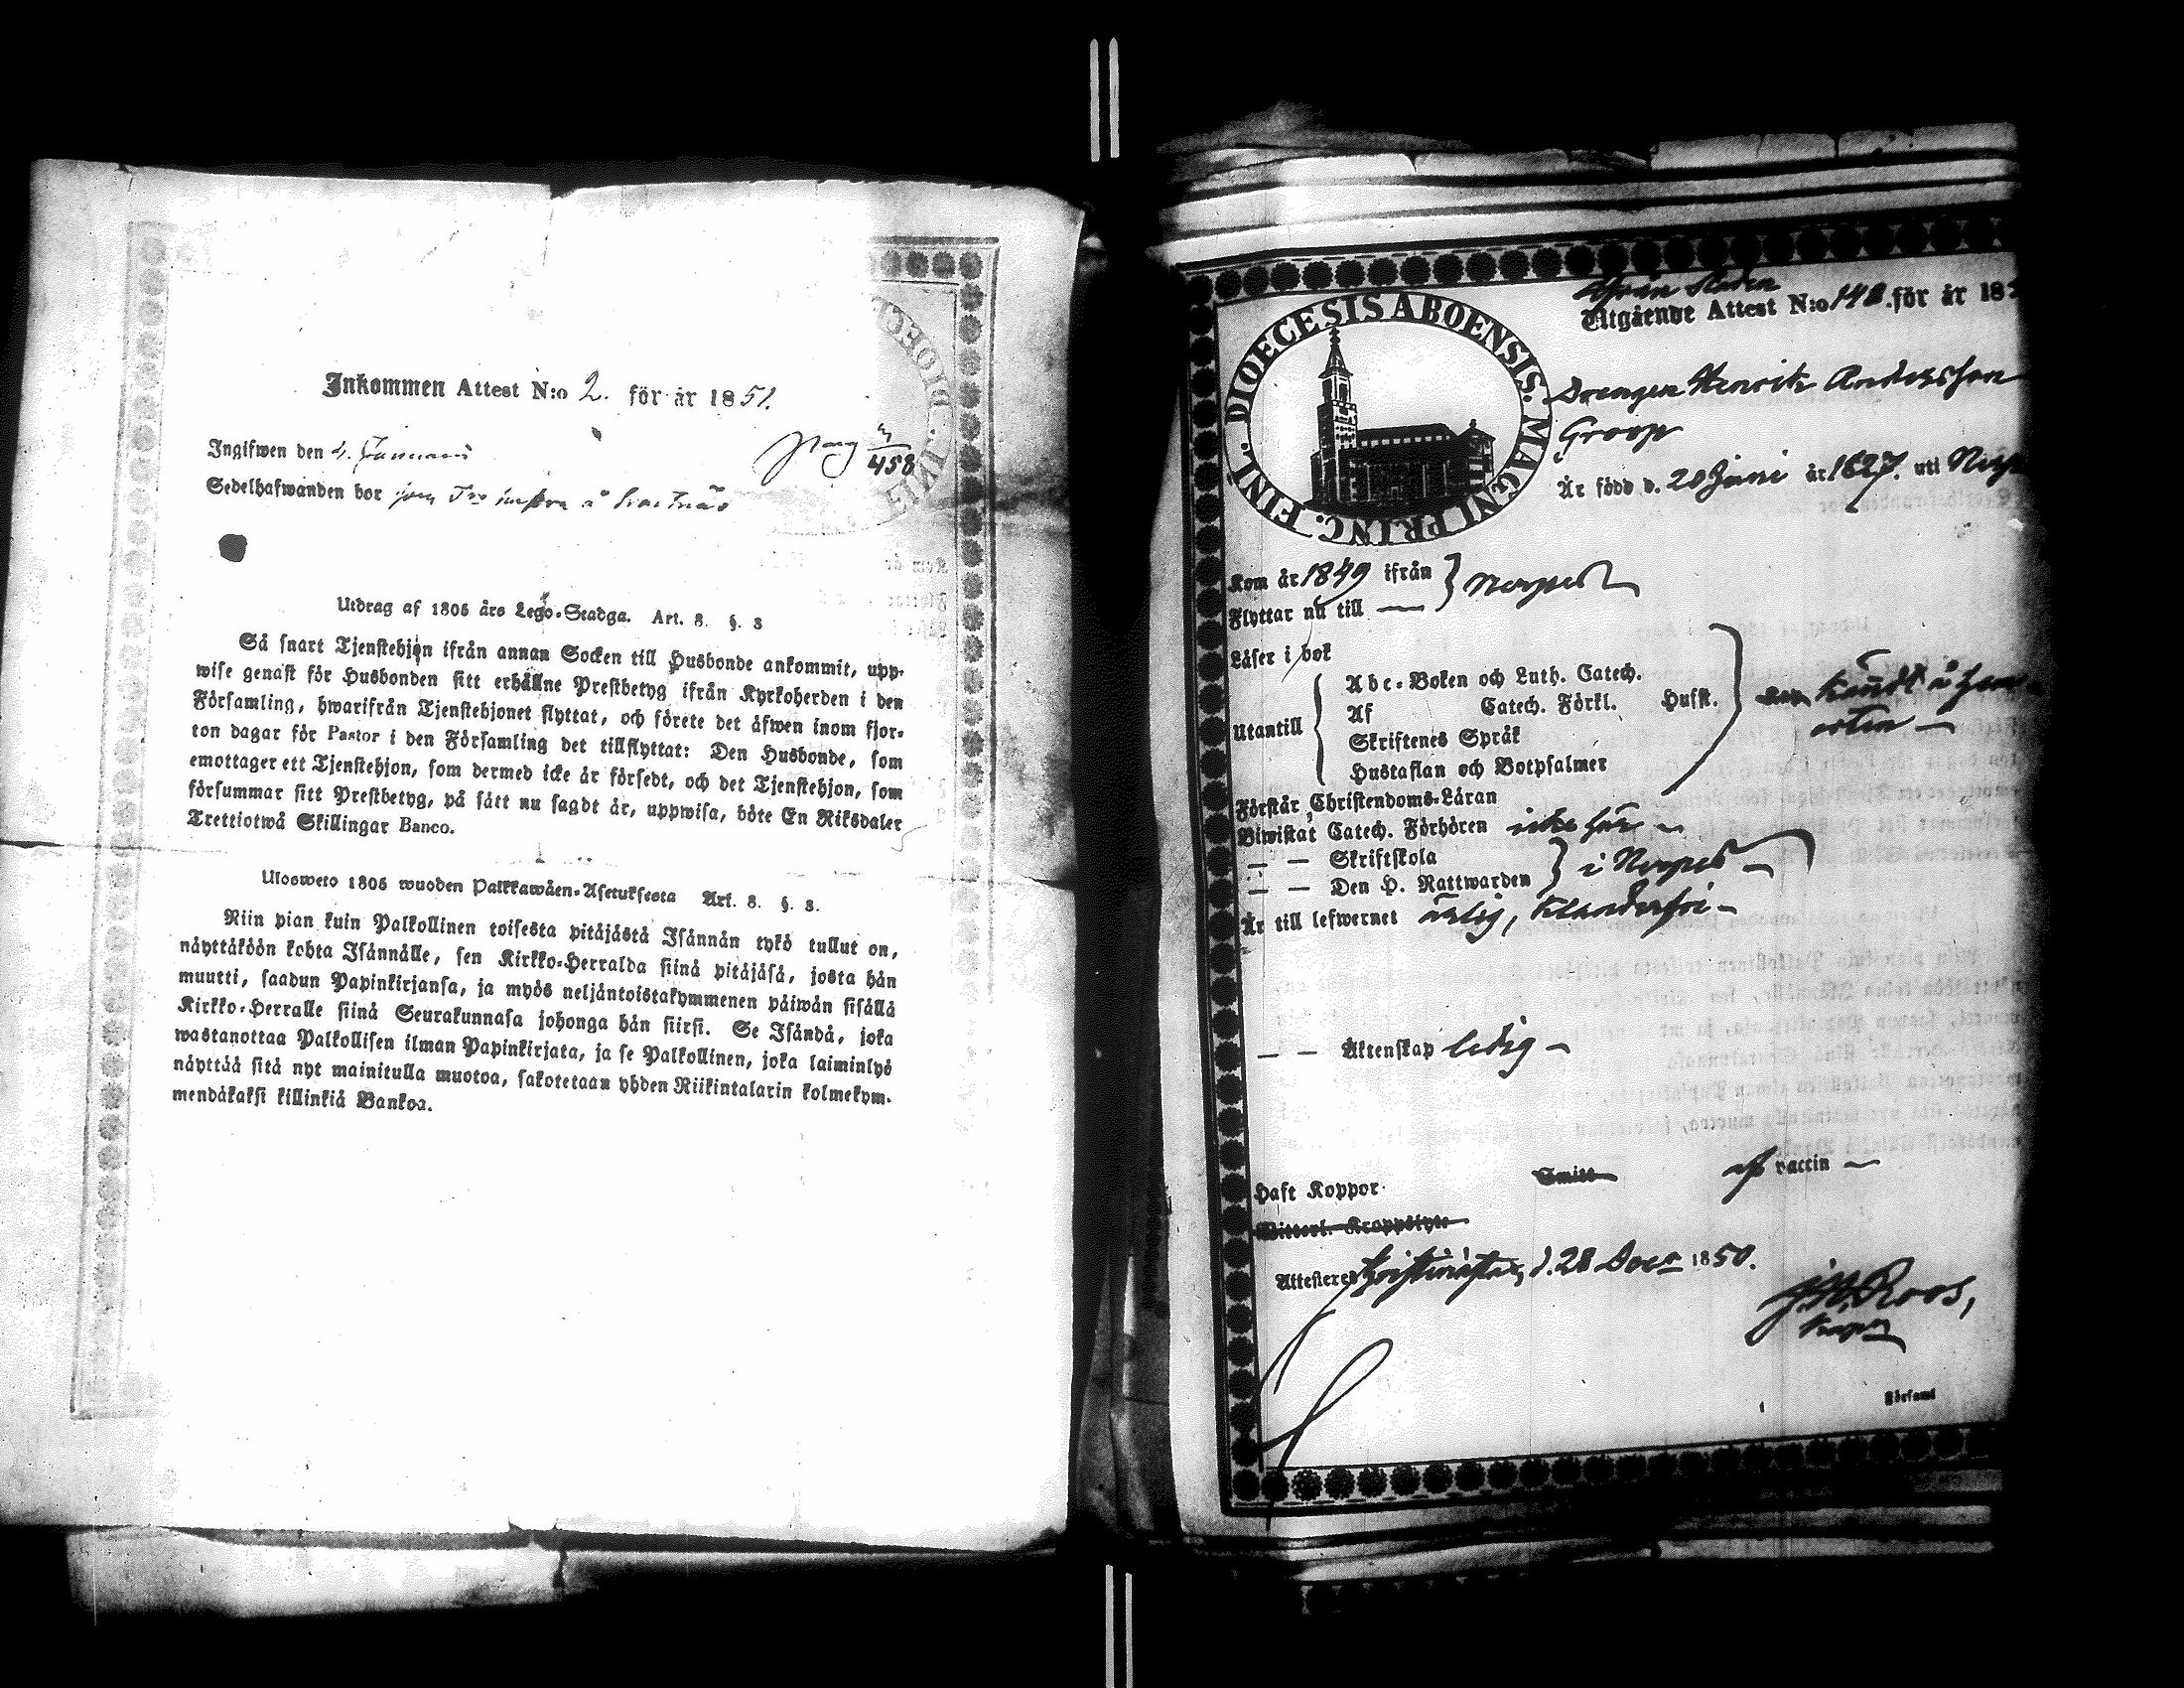 Inkommen Attest N:o 2. för år 1851.
Ingifwen den 4. Januarii
pag 458
Sedelhafwanden bor
Utdrag af 1805 års Lego-Stadga. Art. 8. §. 3
Så snart Tjenstehjon ifrån annan Socken till Husbonde ankommit, upp-
wise genast för Husbonden sitt erhållne Prestbetyg ifrån Kyrkoherden i den
Församling, hwarifrån Tjenstehjonet flyttat, och förete det äfwen inom fjor-
ton dagar för Pastor i den Församling det tillflyttat: Den Husbonde, som
emottager ett Tjenstehjon, som dermed icke är försedt, och det Tjenstehjon, som
försummar sitt Prestbetyg, på sätt nu sagdt är, uppwisa, böte En Riksdaler
Trettiotwå Skillingar Banco.
Ulosweto 1805 wuoden Palkkawäen-Asetuksesta Art. 8. §. 3.
Niin pian kuin Palkollinen toisesta pitäjästä Isännän tykö tullut on,
näyttäköön kohta Isännälle, sen Kirkko-Herralda siinä pitäjäsä, josta hän
muutti, saadun Papinkirjansa, ja myös neljäntoistakymmenen päiwän sisällä
Kirkko-Herralle siinä Seurakunnasa johonga hän siirsi. Se Isändä, joka
wastanottaa Palkollisen ilman Papinkirjata, ja se Palkollinen, joka laiminlyö
näyttää sitä nyt mainitulla muotoa, sakotetaan yhden Riikintalarin kolmekym-
mendäkaksi killinkiä Bankoa.
DIOECESIS ABOENSIS. MAGNI PRINC. FINL.
ifrån Staden
Utgående Attest N:o 148. för år 18
Drengen Henrik Andersson
Groop
Är född d. 20 Juni år 1827. uti
Kom år 1849 ifrån } Nerpes
Flyttar nu till —
Läser i bok
Utantill { Abc-Boken och Luth. Catech.
Af Catech. Förkl. Husst.
Skriftenes Språk
Hustaflan och Botpsalmer
orten —
Förstår Christendoms-Läran
Biwistat Catech. Förhören icke här —
— — Skriftskola
— — Den H. Nattwarden } i Nerpes —
Är till lefwernet ärlig, klanderfri —
— — Äktenskap ledig —
Haft Koppor. Smitt vaccin —
Witterl. Kroppslyte
Attesterer Christinestad, d. 28 Decr 1850.
Roos,
Församl